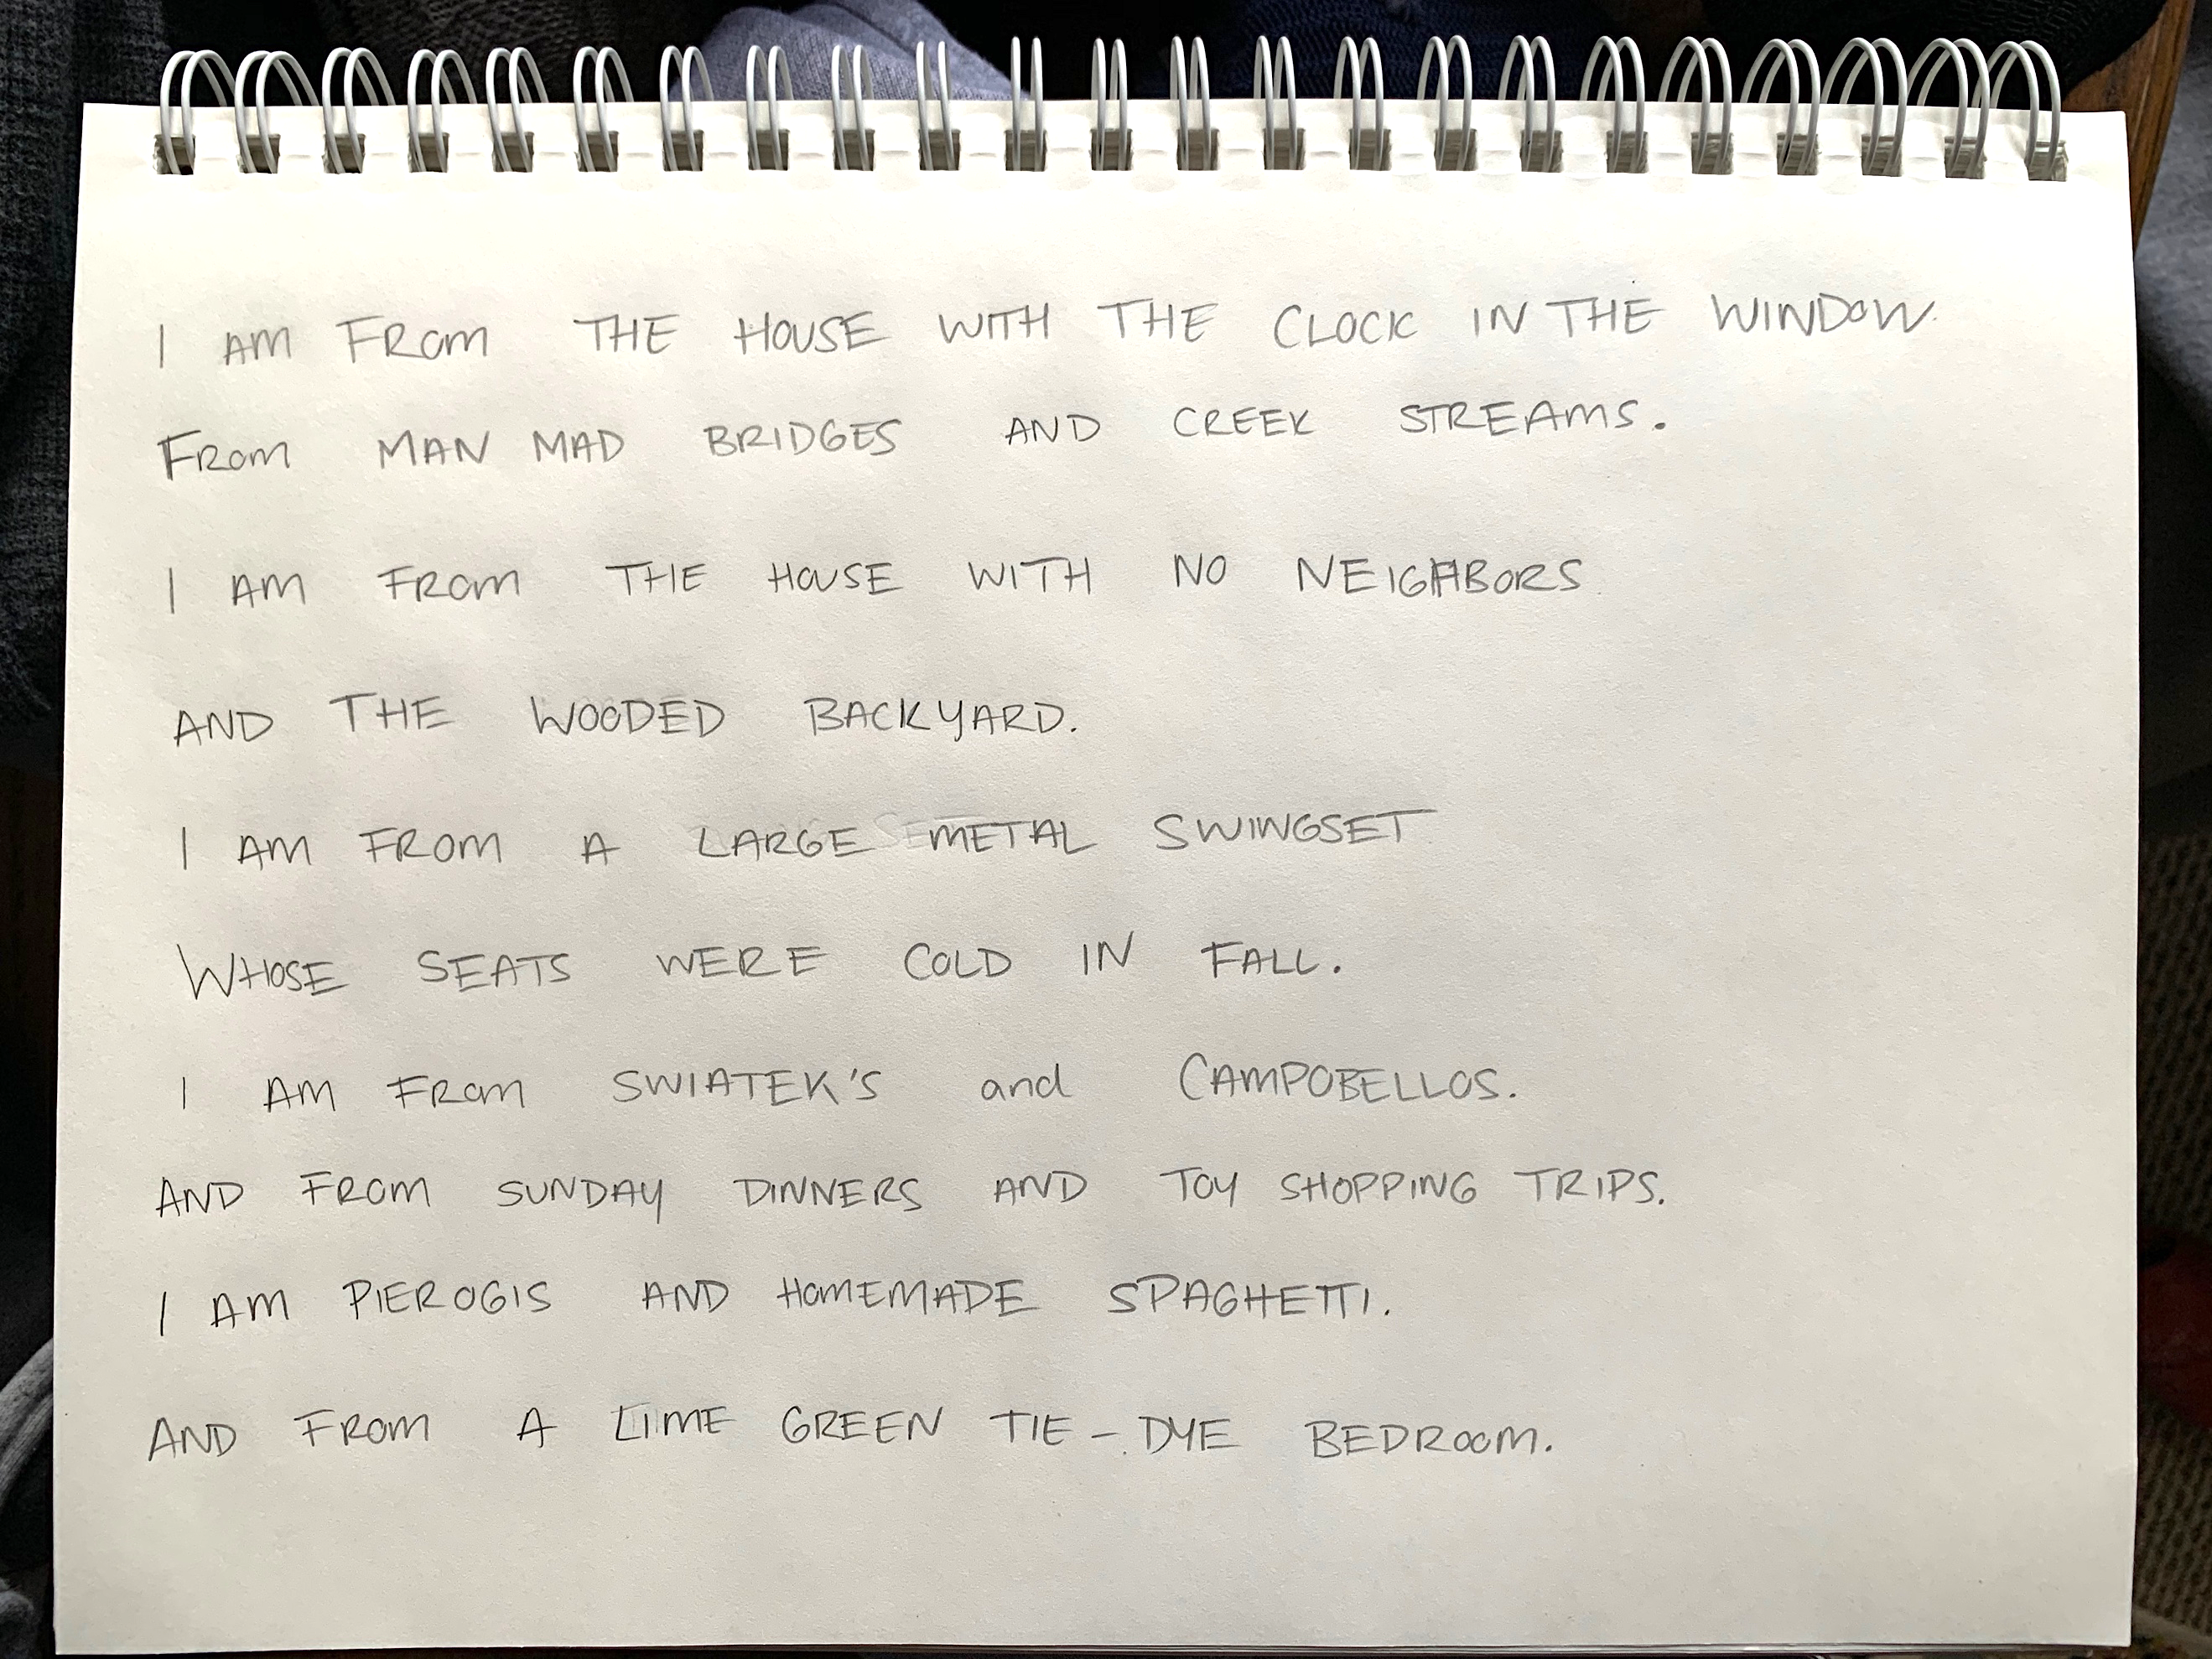 I AM FROM THE HOUSE WITH THE CLOCK IN THE WINDOW.
FROM MAN MAD BRIDGES AND CREEK STREAMS.
I AM FROM THE HOUSE WITH NO NEIGHBORS
AND THE WOODED BACKYARD.
I AM FROM A LARGE METAL SWINGSET
WHOSE SEATS WERE COLD IN FALL.
I AM FROM SWIATEK'S and CAMPOBELLOS.
AND FROM SUNDAY DINNERS AND TOY SHOPPING TRIPS.
I AM PIEROGIS AND HOMEMADE SPAGHETTI.
AND FROM A LIME GREEN TIE-DYE BEDROOM.